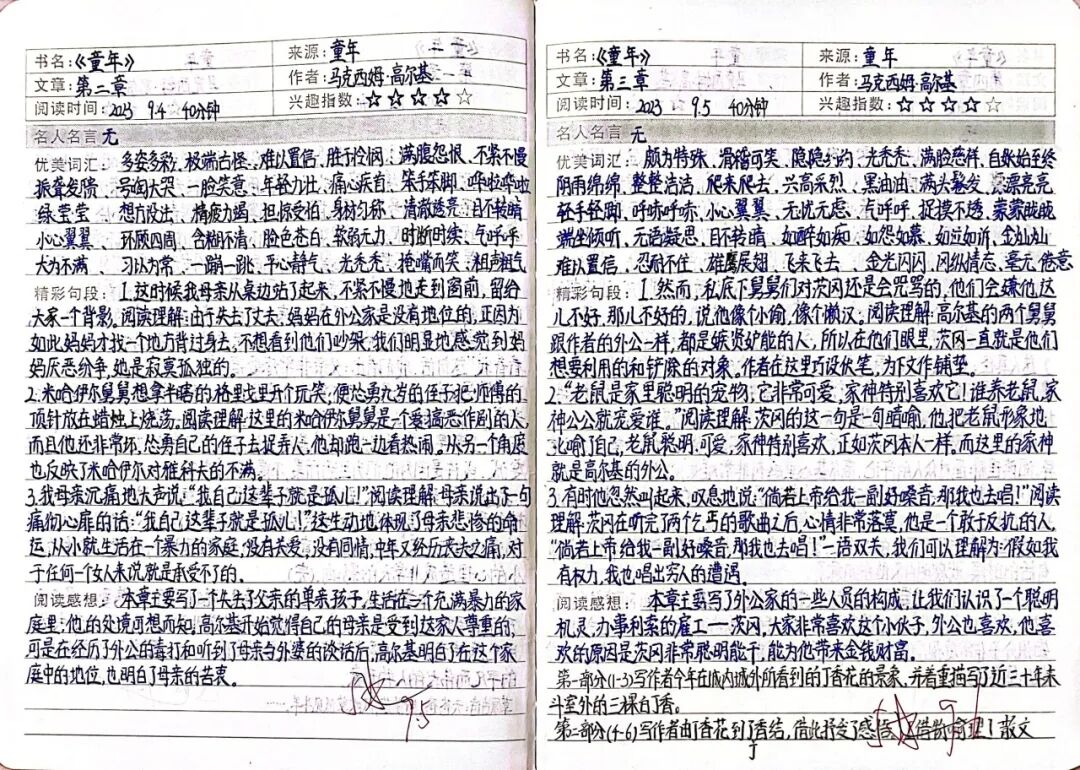 书名:《童年》 来源:童年
文章:第二章 作者:马克西姆·高尔基
阅读时间:2023 9.4 40分钟 兴趣指数:☆☆☆☆☆
名人名言 无
优美词汇: 多姿多彩、极端古怪、难以置信、胜于怜悯、满腹怨恨、不紧不慢
振聋发聩、号啕大哭、一脸笑意、年轻力壮、痛心疾首、笨手笨脚、哗啦哗啦
绿莹莹、想方设法、精疲力竭、担惊受怕、身材匀称、清澈透亮、目不转睛
小心翼翼、环顾四周、含糊不清、脸色苍白、软弱无力、时断时续、气呼呼
大为不满、习以为常、一蹦一跳、平心静气、光秃秃、掩嘴而笑、粗声粗气
精彩句段:1.这时候我母亲从桌边站了起来,不紧不慢地走到窗前,留给
大家一个背影。阅读理解:由于失去了丈夫,妈妈在外公家是没有地位的,正因为
如此妈妈才找一个地方背过身去。不想看到他们吵架,我们明显地感觉到妈
妈厌恶纷争,她是寂寞孤独的。
2.米哈伊尔舅舅想拿半瞎的格里戈里开个玩笑,便怂恿九岁的侄子把师傅的
顶针放在蜡烛上烧荡。阅读理解:这里的米哈伊尔舅舅是一个爱搞恶作剧的人,
而且他还非常坏,怂恿自己的侄子去捉弄人,他却跑一边看热闹。从另一个角度
也反映了米哈伊尔对雅科夫的不满。
3.我母亲沉痛地大声说:"我自己这辈子就是孤儿!"阅读理解:母亲说出了一句
痛彻心扉的话:"我自己这辈子就是孤儿!"这生动地体现了母亲悲惨的命
运,从小就生活在一个暴力的家庭,没有关爱,没有同情,中年又经历丧夫之痛,对
于任何一个女人来说就是承受不了的。
阅读感想: 本章主要写了一个失去了父亲的单亲孩子,生活在一个充满暴力的家
庭里,他的处境可想而知,高尔基开始觉得自己的母亲是受到这家人尊重的,
可是在经历了外公的毒打和听到了母亲与外婆的谈话后,高尔基明白了在这个家
庭中的地位,也明白了母亲的苦衷。
9.5
书名:《童年》 来源:童年
文章:第三章 作者:马克西姆·高尔基
阅读时间:2023 9.5 40分钟 兴趣指数:☆☆☆☆☆
名人名言 无
优美词汇: 颇为特殊、滑稽可笑、隐隐约约、光秃秃、满脸慈祥、自始至终
阴雨绵绵、整整洁洁、爬来爬去、兴高采烈、黑油油、满头鬈发、漂亮亮
轻手轻脚、呼哧呼哧、小心翼翼、无忧无虑、气呼呼、捉摸不透、蒙蒙眬眬
端坐倾听、无语凝思、目不转睛、如醉如痴、如怨如慕、如泣如诉、金灿灿
难以置信、忍耐不住、雄鹰展翅、飞来飞去、金光闪闪、放纵情态、毫无倦意
精彩句段:1.然而,私底下舅舅们对茨冈还是会咒骂的,他们会嫌他这
儿不好,那儿不好的,说他像个小偷,像个懒汉。阅读理解:高尔基的两个舅舅
跟作者的外公一样,都是嫉贤妒能的人,所以在他们眼里,茨冈一直就是他们
想要利用的和铲除的对象。作者在这里巧设伏笔,为下文作铺垫。
2."老鼠是家里聪明的宠物,它非常可爱,家神特别喜欢它!谁养老鼠,家
神公公就宠爱谁。"阅读理解:茨冈的这一句是一句暗喻,他把老鼠形象地
比喻了自己,老鼠聪明、可爱,家神特别喜欢,正如茨冈本人一样。而这里的家神
就是高尔基的外公。
3.有时他忽然叫起来,叹息地说:"倘若上帝给我一副好嗓音,那我也去唱!"阅读
理解:茨冈在听完了两个乞丐的歌曲之后,心情非常落寞,他是一个敢于反抗的人,
"倘若上帝给我一副好嗓音,那我也去唱!"一语双关,我们可以理解为:假如我
有权力,我也唱出穷人的遭遇。
阅读感想: 本章主要写了外公家的一些人员的构成,让我们认识了一个聪明
机灵,办事利索的雇工一茨冈,大家非常喜欢这个小伙子,外公也喜欢,他喜
欢的原因是茨冈非常聪明能干,能为他带来金钱财富。
第一部分(1-3)写作者今年在城内城外所看到的丁香花的景象,并着重描写了近三十年来
斗室外的三棵白丁香。
第二部分(4-6)写作者由丁香花到丁香结,借此抒发了感悟 借物喻理 散文